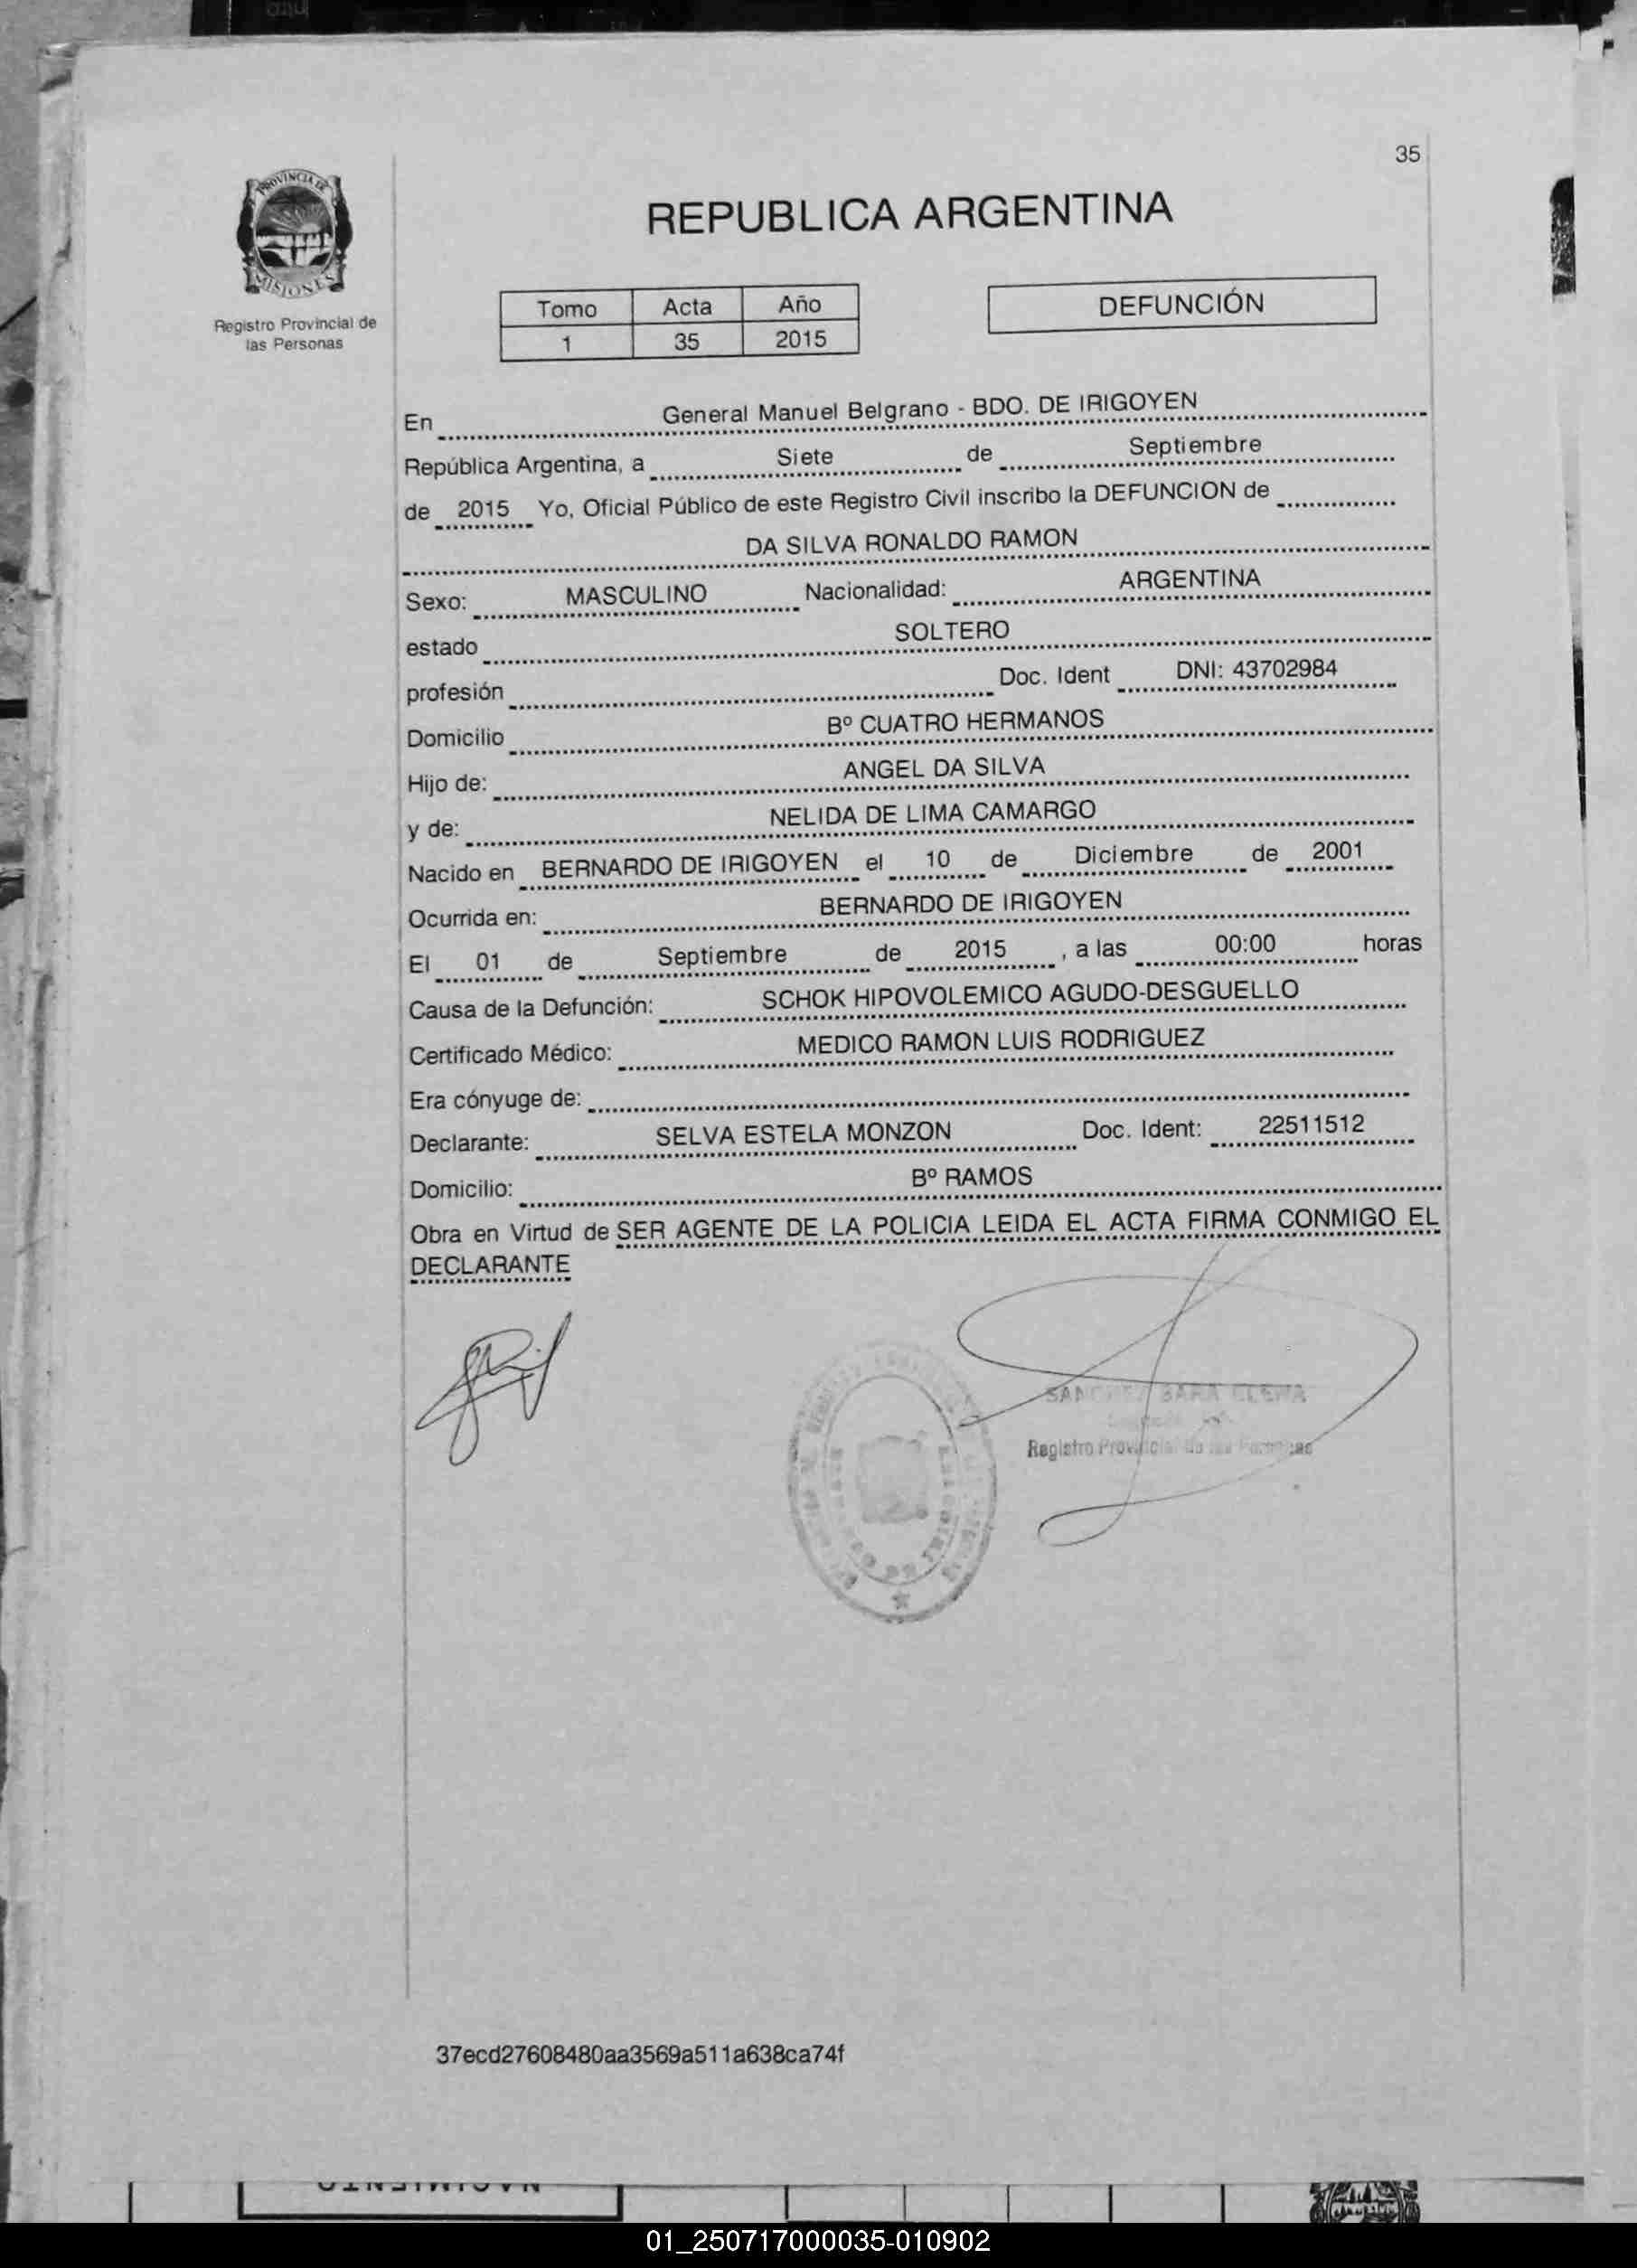 35
PROVINCIA DE
MISIONES
Registro Provincial de
las Personas
REPUBLICA ARGENTINA
Tomo Acta Año
1 35 2015
DEFUNCIÓN
En General Manuel Belgrano - BDO. DE IRIGOYEN
República Argentina, a Siete de Septiembre
de 2015 Yo, Oficial Público de este Registro Civil inscribo la DEFUNCION de
DA SILVA RONALDO RAMON
Sexo: MASCULINO Nacionalidad: ARGENTINA
estado SOLTERO
profesión Doc. Ident DNI: 43702984
Domicilio Bº CUATRO HERMANOS
Hijo de: ANGEL DA SILVA
y de: NELIDA DE LIMA CAMARGO
Nacido en BERNARDO DE IRIGOYEN el 10 de Diciembre de 2001
Ocurrida en: BERNARDO DE IRIGOYEN
El 01 de Septiembre de 2015 , a las 00:00 horas
Causa de la Defunción: SCHOK HIPOVOLEMICO AGUDO-DESGUELLO
Certificado Médico: MEDICO RAMON LUIS RODRIGUEZ
Era cónyuge de:
Declarante: SELVA ESTELA MONZON Doc. Ident: 22511512
Domicilio: Bº RAMOS
Obra en Virtud de SER AGENTE DE LA POLICIA LEIDA EL ACTA FIRMA CONMIGO EL
DECLARANTE
SARA
Registro Provincial de las Personas
37ecd27608480aa3569a511a638ca74f
01_250717000035-010902